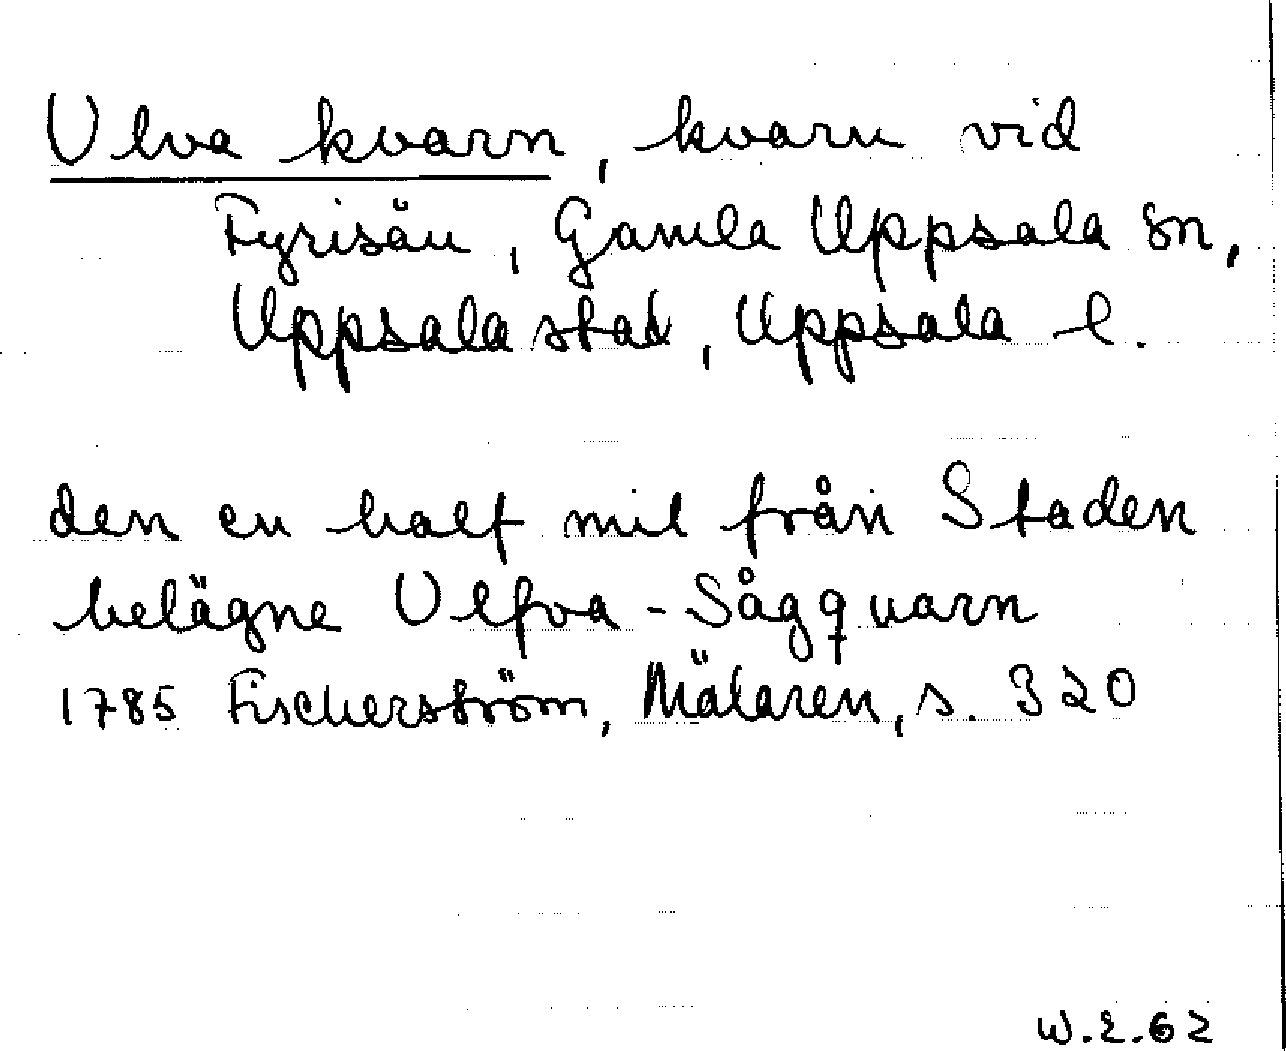 Ulva kvarn, kvarn vid
Fyrisån, Gamla Uppsala sn,
Uppsala stad, Uppsala l.
den en half mil från Staden
belägne Ulfva-Sågquarn
1785 Fischerström, Mälaren, s. 320
W.E.62